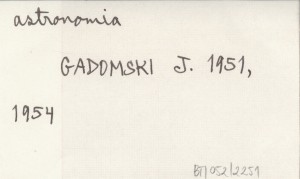 astronomia
GADOMSKI J. 1951,
1954
BM 052/2251